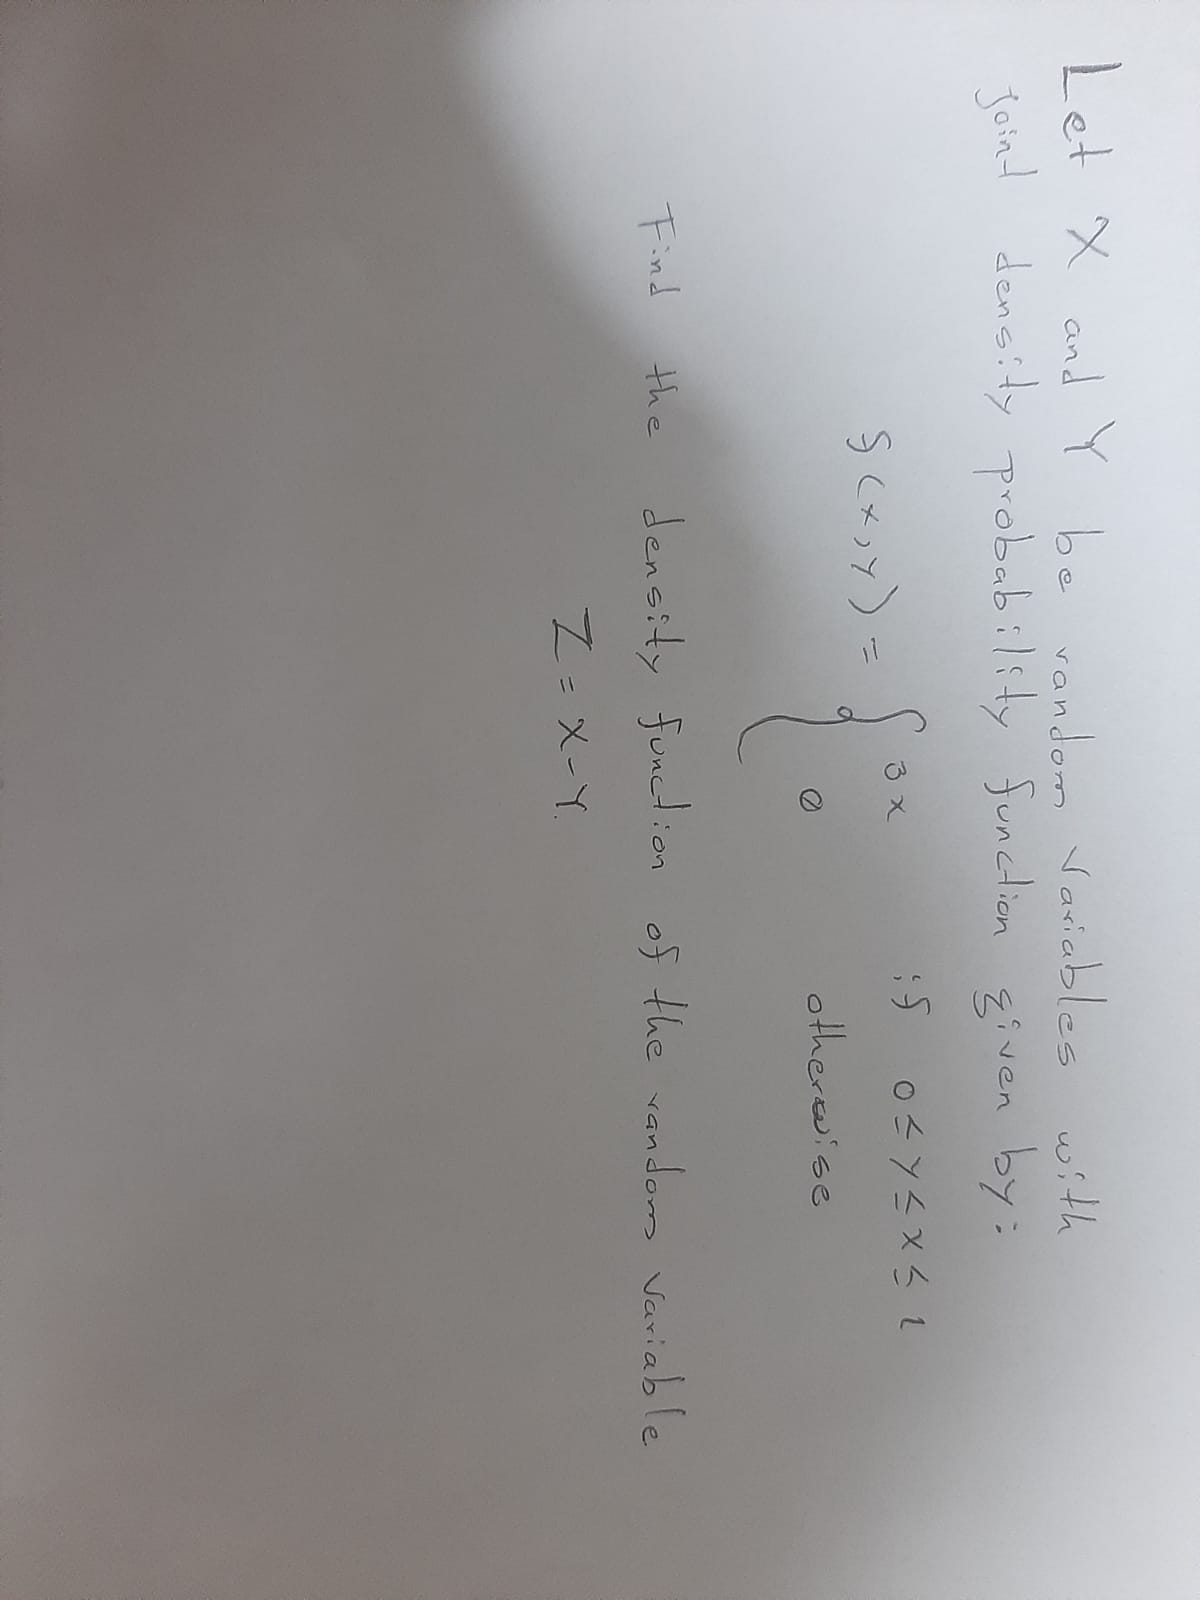 Let X and Y be random variables with
joint density probability function given by:
f(x,y) = { 3x if 0≤y≤x≤1
0 otherwise
Find the density function of the random variable
Z = X-Y.